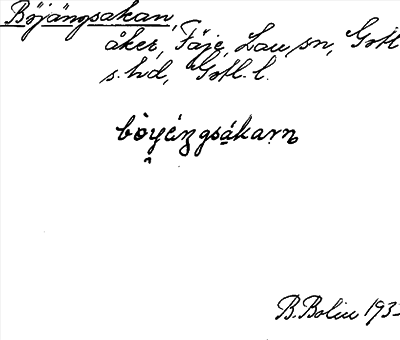 Böjängsakan,
åker, Fäje, Lau sn, Gotl
s. hd, Gotl. l.
bòyéngsákarn
B. Bolin 193